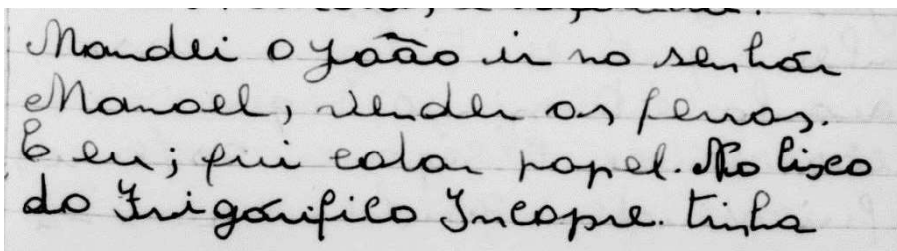 Mandei o João ir no senhor
Manoel, vender os ferros.
E eu; fui catar papel. No lixo
do Frigorífico Incapre. tinha